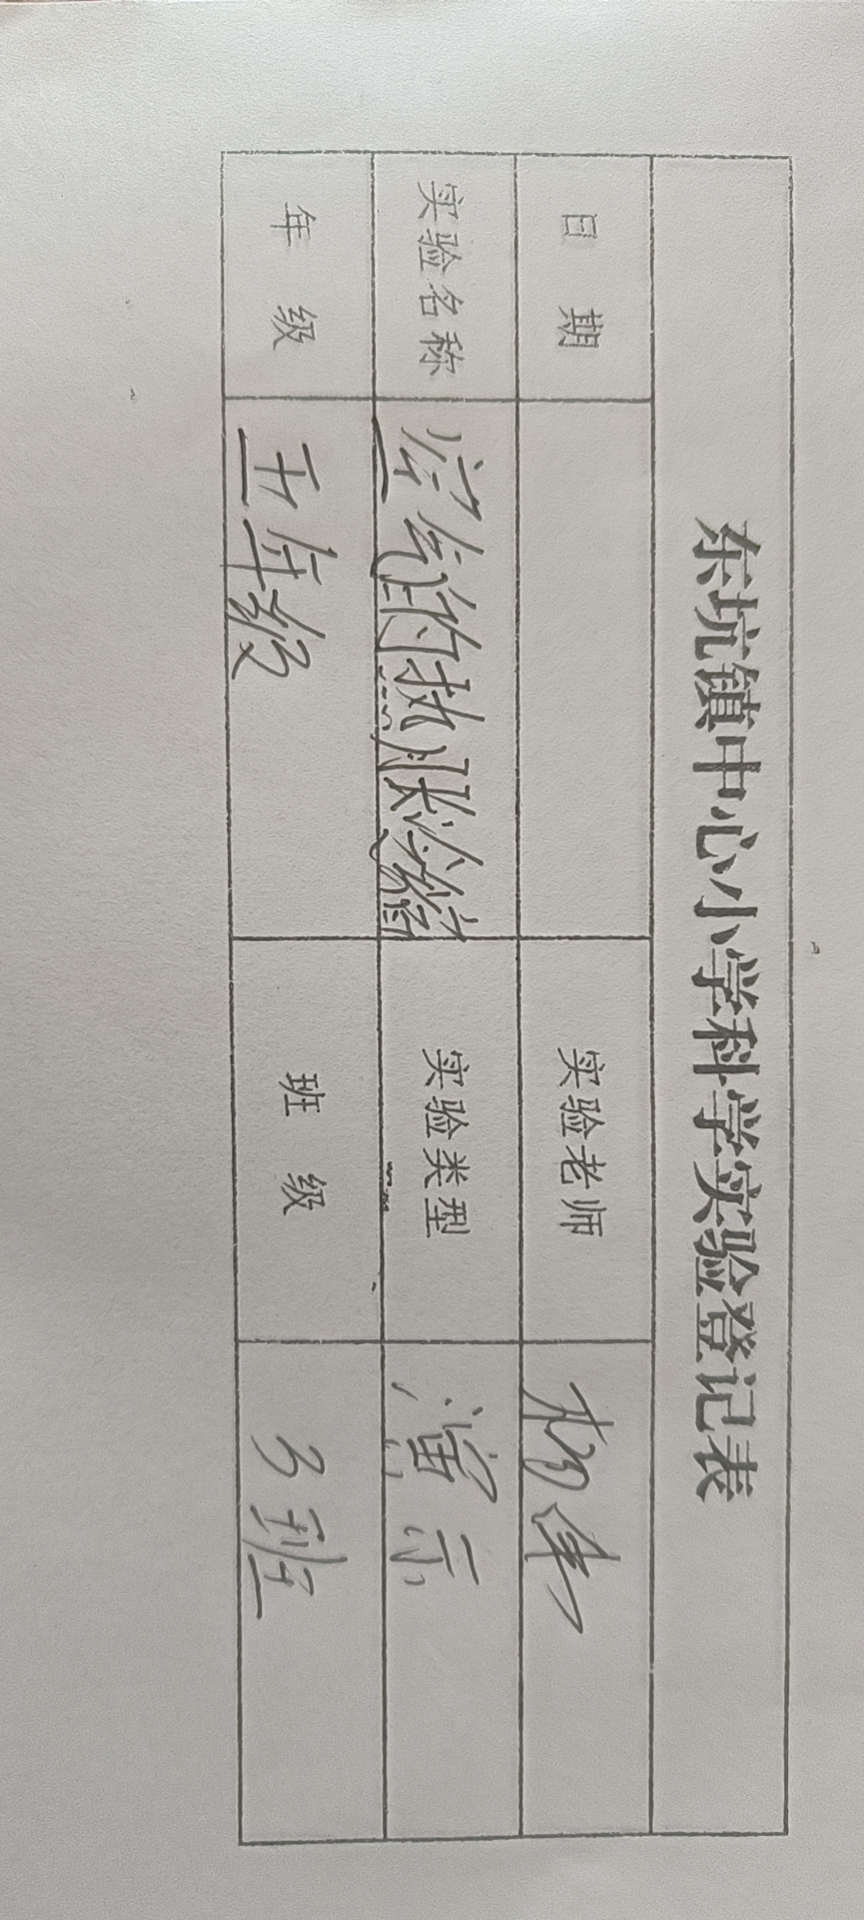 东坑镇中心小学科学实验登记表
日 期 实验老师 杨
实验名称 空气的热胀冷缩 实验类型 演示
年 级 五年级 班 级 3班